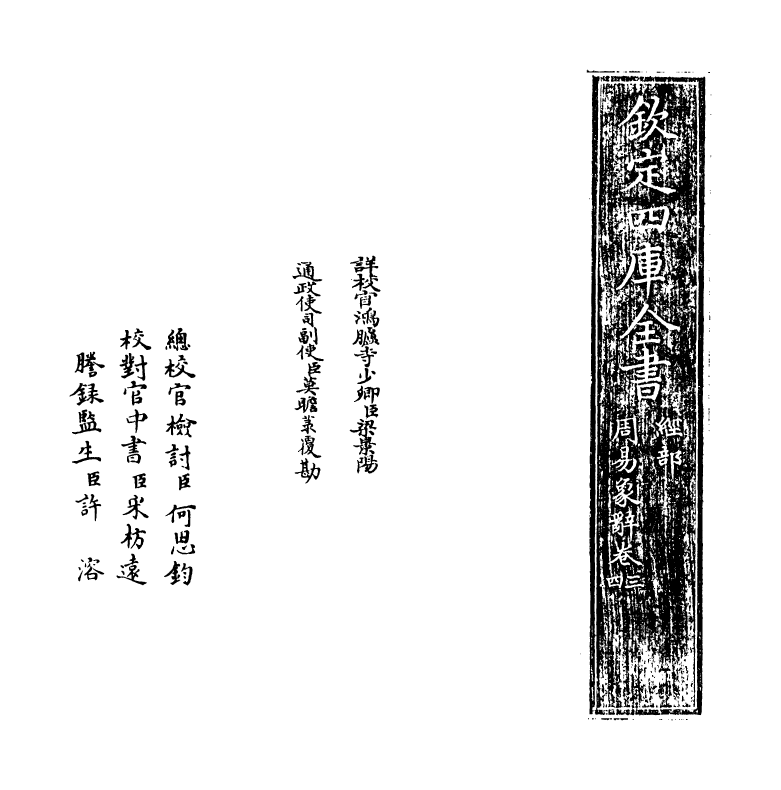 欽定四庫全書
經部
周易象辭卷三
四
詳校官鴻臚寺少卿臣梁景陽
通政使司副使臣莫瞻菉覆勘
總校官檢討臣何思鈞
校對官中書臣宋枋遠
謄錄監生臣許溶